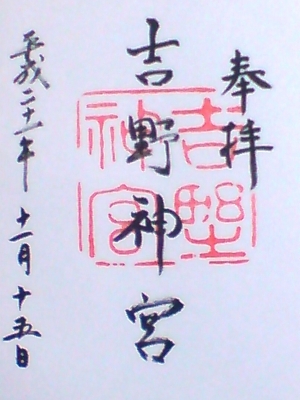 奉拝
吉野神宮
平成二十一年 十一月十五日
吉野
神宮